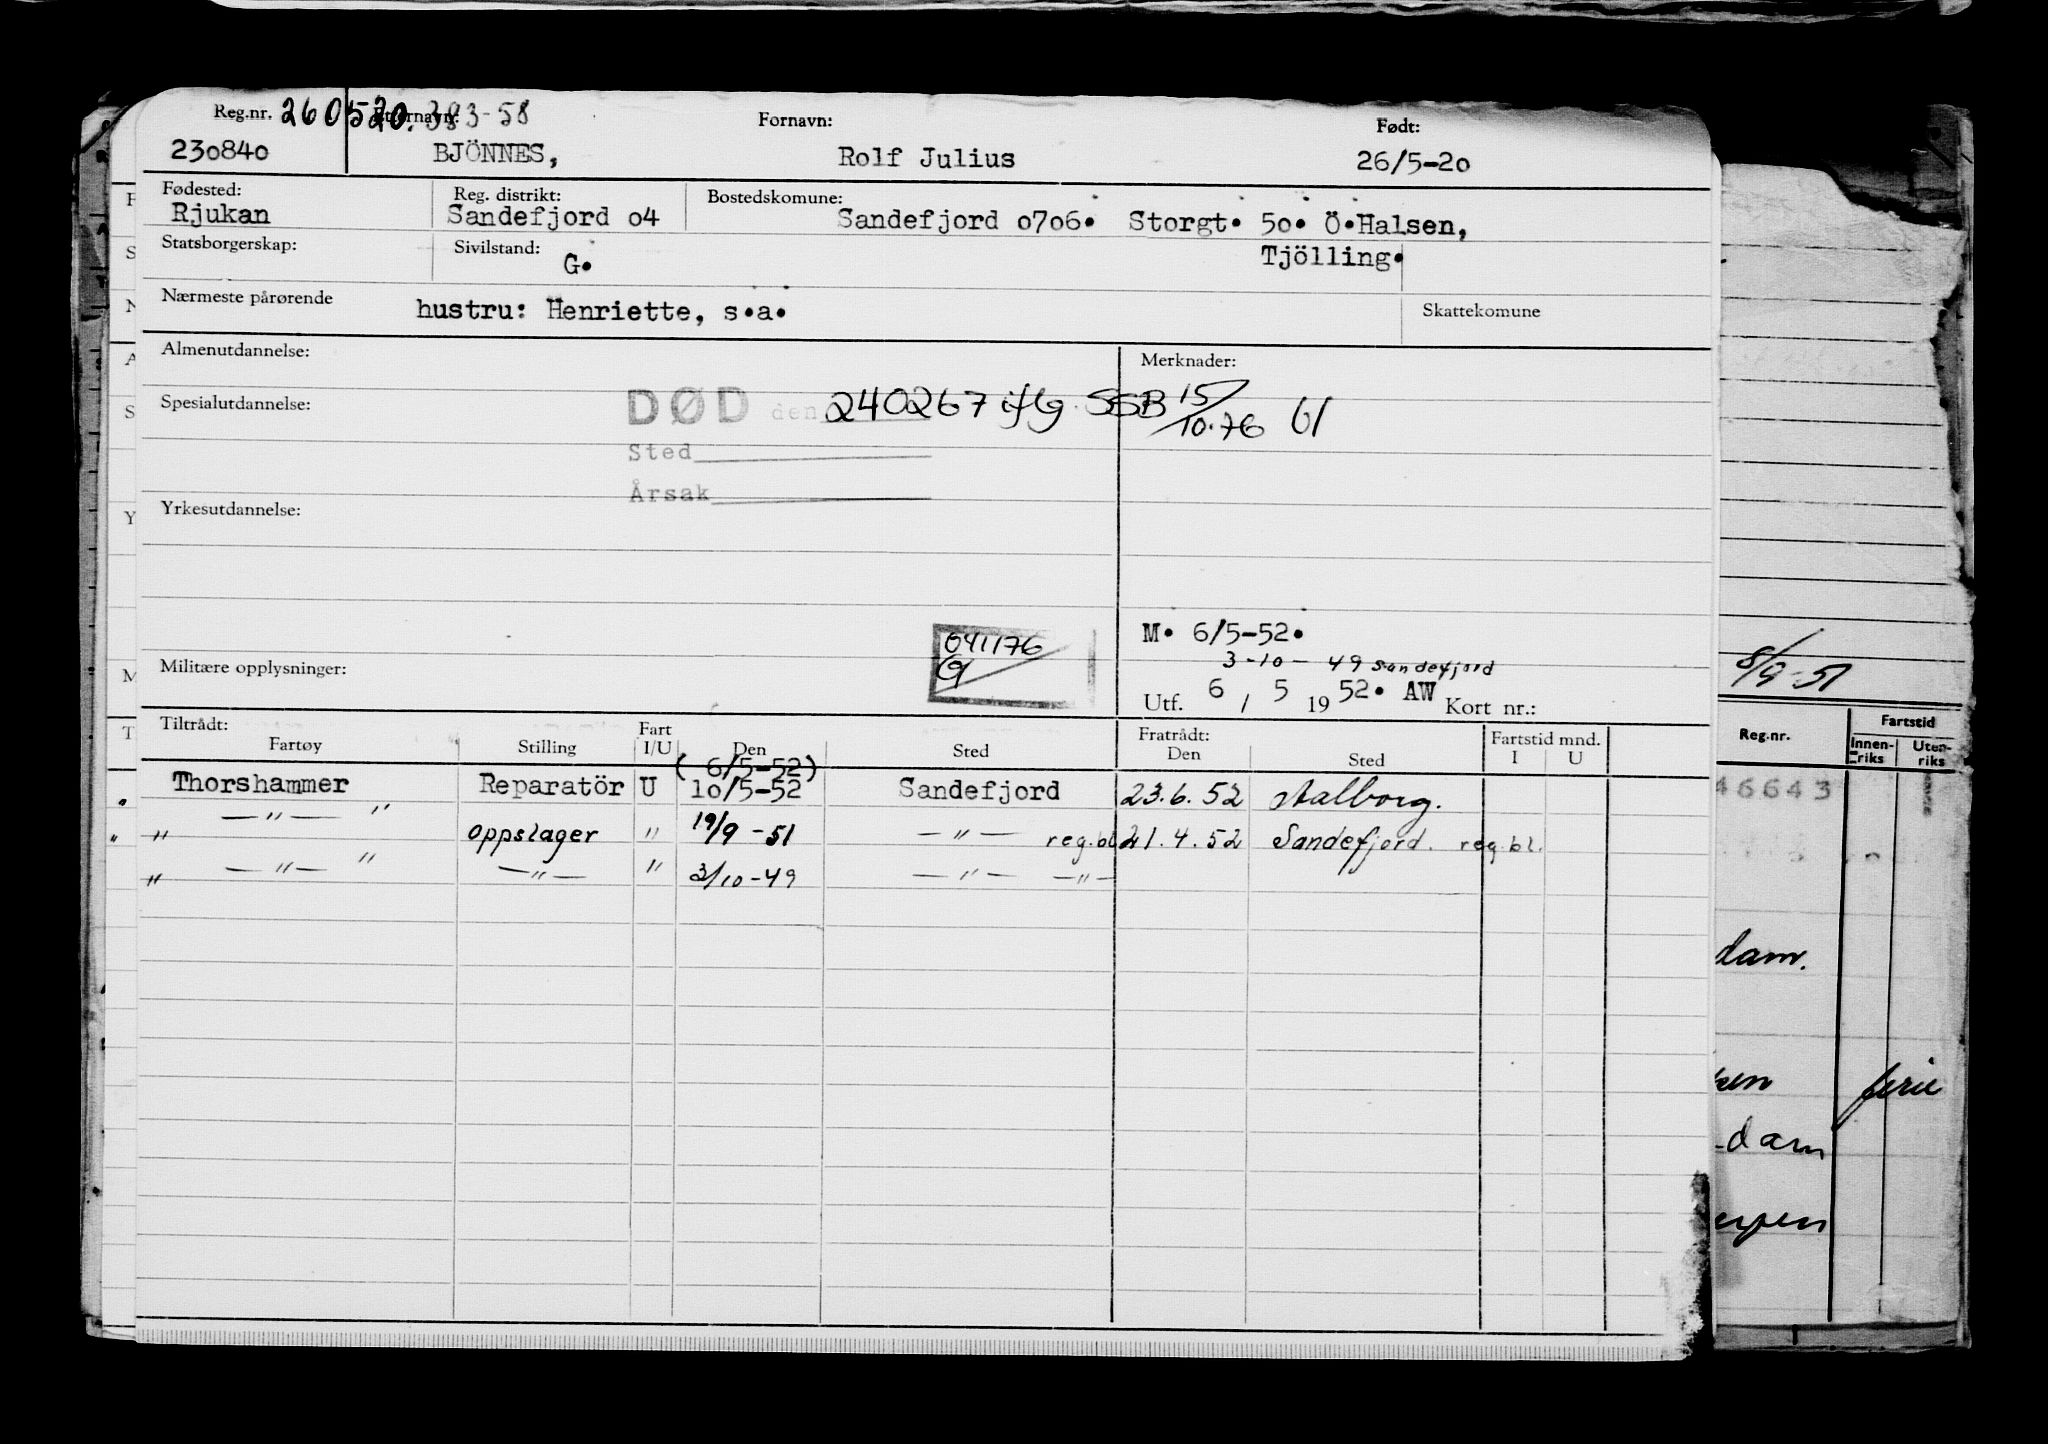 Reg.nr. 260520. 393-58 Etternavn: Fornavn: Født:
230840 BJÖNNES, Rolf Julius 26/5-20
Fødested: Reg. distrikt: Bostedskomune:
Rjukan Sandefjord 04 Sandefjord 0706. Storgt. 50. Ö.Halsen,
Statsborgerskap: Sivilstand: G. Tjölling.
Nærmeste pårørende hustru: Henriette, s.a. Skattekomune
Almenutdannelse: Merknader:
Spesialutdannelse: DØD den 240267 ifg. SSB 15/10.76
Sted
Årsak
Yrkesutdannelse:
041176
M. 6/5-52.
3-10-49 Sandefjord
Militære opplysninger:
Utf. 6 / 5 1952. AW Kort nr.:
8/9-51
Tiltrådt: Fart Fratrådt: Fartstid mnd.
Fartøy Stilling I/U Den Sted Den Sted I U
Reg.nr. Fartstid
Innen-riks Uten-riks
(6/5-52)
Thorshammer Reparatör U 10/5-52 Sandefjord 23.6.52 Aalborg.
46643
" —"— " oppslager " 19/9-51 —"— reg.bl. 21.4.52 Sandefjord. reg.bl.
" —"— " —"— " 3/10-49 —"— —"—
dam.
ferie
dam